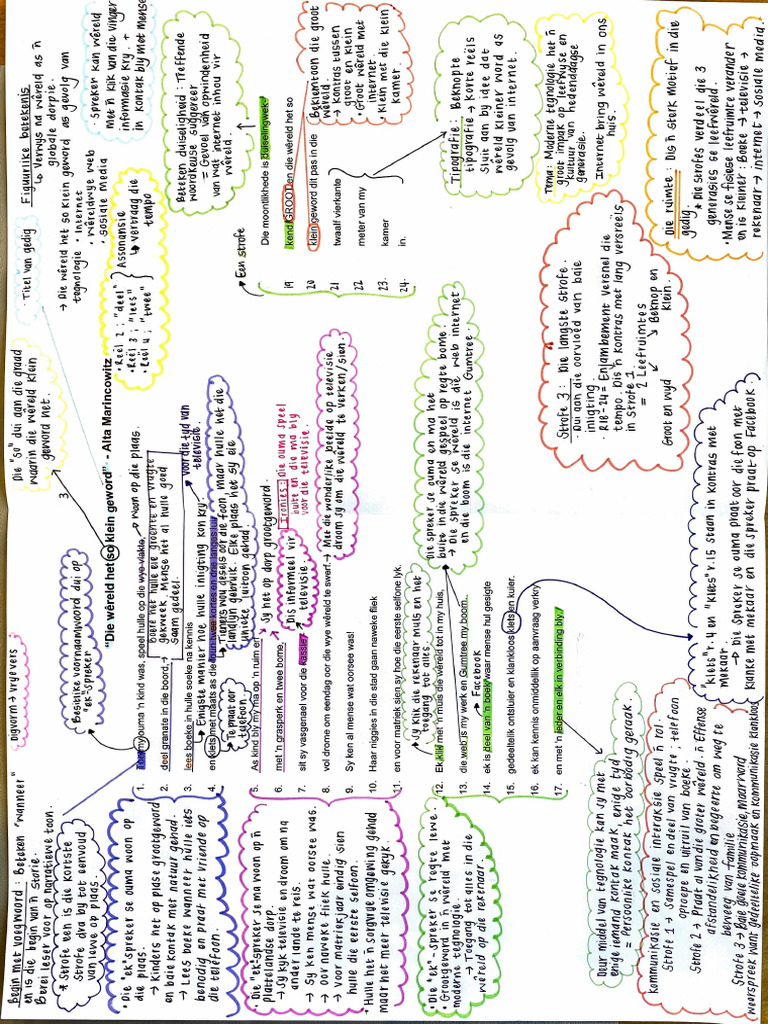 digvorm → vrye vers
Begin met voegwoord: Beteken "wanneer"
en is die begin van ñ storie.
Berei leser voor op narratiewe toon.
* Strofe een is die kortste
Strofe dra by tot eenvoud
van lewe op plaas.
Besitlike voornaamwoord dui op
"ek"-spreker
Die "so" dui aan die graad
waarin die wêreld klein
geword het.
3.
Titel van gedig
Figuurlike betekenis
↳ Verwys na wêreld as ñ
globale dorpie.
→ Die wêreld het so klein geword as gevolg van
tegnologie • Internet
• wêreldwye web
• sosiale media
• Spreker kan wêreld
met ñ klik van die vinger
informasie kry. +
in kontak bly met mense
"Die wêreld het so klein geword" - Alta Marincowitz
• Reël 2 ; "deel"
• Reël 3 ; "lees"
• Reël 4 ; "twee"
Assonansie
↳ vertraag die
tempo
1. Toe my ouma 'n kind was, speel hulle op die wye vlakte,
→ Woon op die plaas.
2. deel granate in die boord,
→ Ouers het hulle eie groente en vrugte
gekweek. Mense het al hulle goed
saam gedeel.
3. lees boeke in hulle soeke na kennis
→ Enigste manier hoe hulle inligting kon kry.
voor die tyd van
televisie.
4. en klets met maats as die foon twee kortes en drie langes lui.
↳ Te praat oor
telefoon.
↳ Tieners wou gesels oor die foon, maar hulle het die
landlyn gebruik. Elke plaas het sy eie
unieke luitoon gehad.
5. As kind bly my ma op 'n ruim erf
→ Sy het op dorp grootgeword.
6. met 'n grasperk en twee bome,
7. sit sy vasgenael voor die kassie/
→ Dis informeel vir
televisie.
Ironies: Die ouma speel
buite en die ma bly
voor die televisie.
8. vol drome om eendag oor die wye wêreld te swerf.
→ Met die wonderlike beelde op televisie
droom sy om die wêreld te verken/sien.
9. Sy ken al mense wat oorsee was.
10. Haar niggies in die stad gaan naweke fliek
11. en voor matriek sien sy hoe die eerste selfone lyk.
↳ Sy klik die rekenaar muis en het
toegang tot alles.
12. Ek klik met 'n muis die wêreld tot in my huis,
13. die web is my werk en Gumtree my boom.
Die spreker se ouma en ma het
buite in die wêreld gespeel op regte bome.
→ Die spreker se wêreld is die web internet
en die boom is die internet Gumtree.
→ Facebook
14. ek is deel van 'n boek waar mense hul gesigte
15. gedeeltelik ontsluier en klankloos klets en kuier.
16. ek kan kennis onmiddellik op aanvraag verkry
17. en met 'n ieder en elk in verbinding bly./
→ Een strofe
Die moontlikhede is duiselingwek-
19 kend/GROOT en die wêreld het so
20 klein geword dit pas in die
21 twaalf vierkante
22 meter van my
23. kamer
24. in.
Beteken duiseligheid: Treffende
woordkeuse suggereer
= Gevoel van opwindenheid
van wat internet inhou vir
wêreld.
Beklemtoon die groot
wêreld
→ kontras tussen
groot en klein
• Groot wêreld met
internet.
• Klein met die klein
kamer.
Tipografie: Beknopte
tipografie → Korte reëls
sluit aan by idee dat
wêreld kleiner word as
gevolg van internet.
Tema: Moderne tegnologie het ñ
groot impak op leefwyse en
kultuur van hedendaagse
generasie.
Internet bring wêreld in ons
huis.
Die ruimte: Dis ñ sterk motief in die
gedig.
* Die strofes verdeel die 3
generasies se leefwêreld.
• Mense se fisiese leefruimte verander
en is kleiner: Boeke → televisie →
rekenaar → internet → sosiale media.
Strofe 3: Die langste strofe.
• Dui aan die oorvloed van baie
inligting.
• R18-24 = Enjambement versnel die
tempo. Dis ñ kontras met lang versreëls
in Strofe 1
= 2 Leefruimtes
Groot en wyd
Beknop en
klein.
"klets" r.4 en "klets" r.15 staan in kontras met
mekaar.
→ Die spreker se ouma praat oor die foon met
klanke met mekaar en die spreker praat op Facebook.
• Die "ek" spreker se ouma woon op
die plaas.
→ Kinders het op plase grootgeword
en baie kontak met natuur gehad.
→ Lees boeke wanneer hulle iets
benodig en praat met vriende op
die telefoon.
• Die "ek" spreker se ma woon op ñ
plattelandse dorp.
→ Sy kyk televisie en droom om na
ander lande te reis.
→ Sy ken mense wat oorsee was.
→ oor naweke fliek hulle.
→ Voor matriekjaar eindig sien
hulle die eerste selfoon.
• Hulle het ñ sorgvrye omgewing gehad
maar het meer televisie gekyk.
• Die "ek"-spreker se regte lewe.
• Grootgeword in ñ wêreld met
moderne tegnologie.
→ Toegang tot alles in die
wêreld op die rekenaar.
Deur middel van tegnologie kan sy met
enige iemand kontak maak, enige tyd
= Persoonlike kontak het oorbodig geraak.
Kommunikasie en sosiale interaksie speel ñ rol.
Strofe 1 → Samespel en deel van vrugte; telefoon
oproepe en uitruil van boeke.
Strofe 2 → Praat al van die groter wêreld - ñ Effense
afstandelikheid en begeerte om weg te
beweeg van familie
Strofe 3 → Baie goeie kommunikasie, maar vanaf
weerspreek want gedeeltelike oopmaak en kommunikasie klankloos